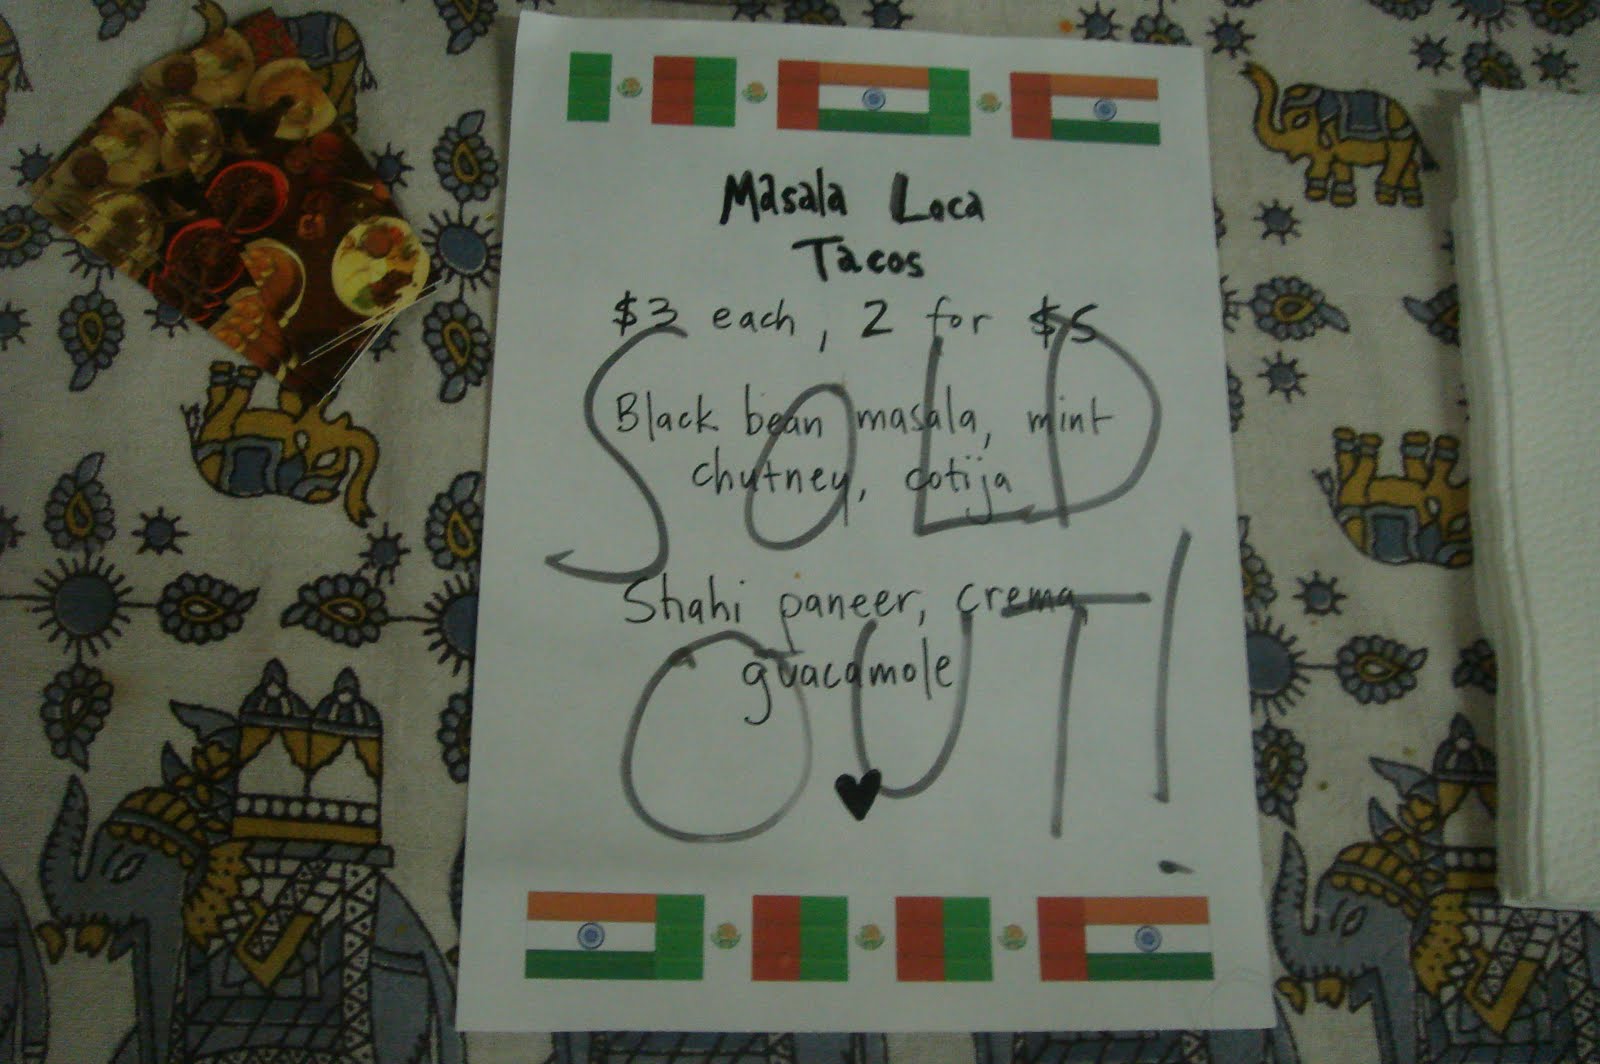 Masala Loca
Tacos
$3 each, 2 for $5
Black bean masala, mint
chutney, cotija
Shahi paneer, crema,
guacamole
SOLD
OUT!